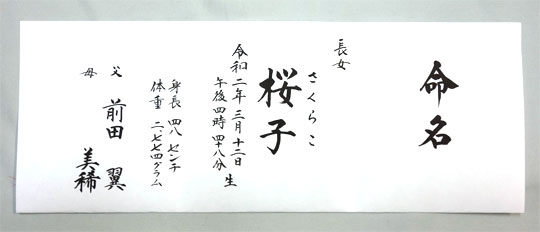 命名
長女
さくらこ
桜子
令和二年三月十二日
午後四時四十八分 生
身長 四八センチ
体重 二、七七四グラム
父 前田 翼
母 美稀